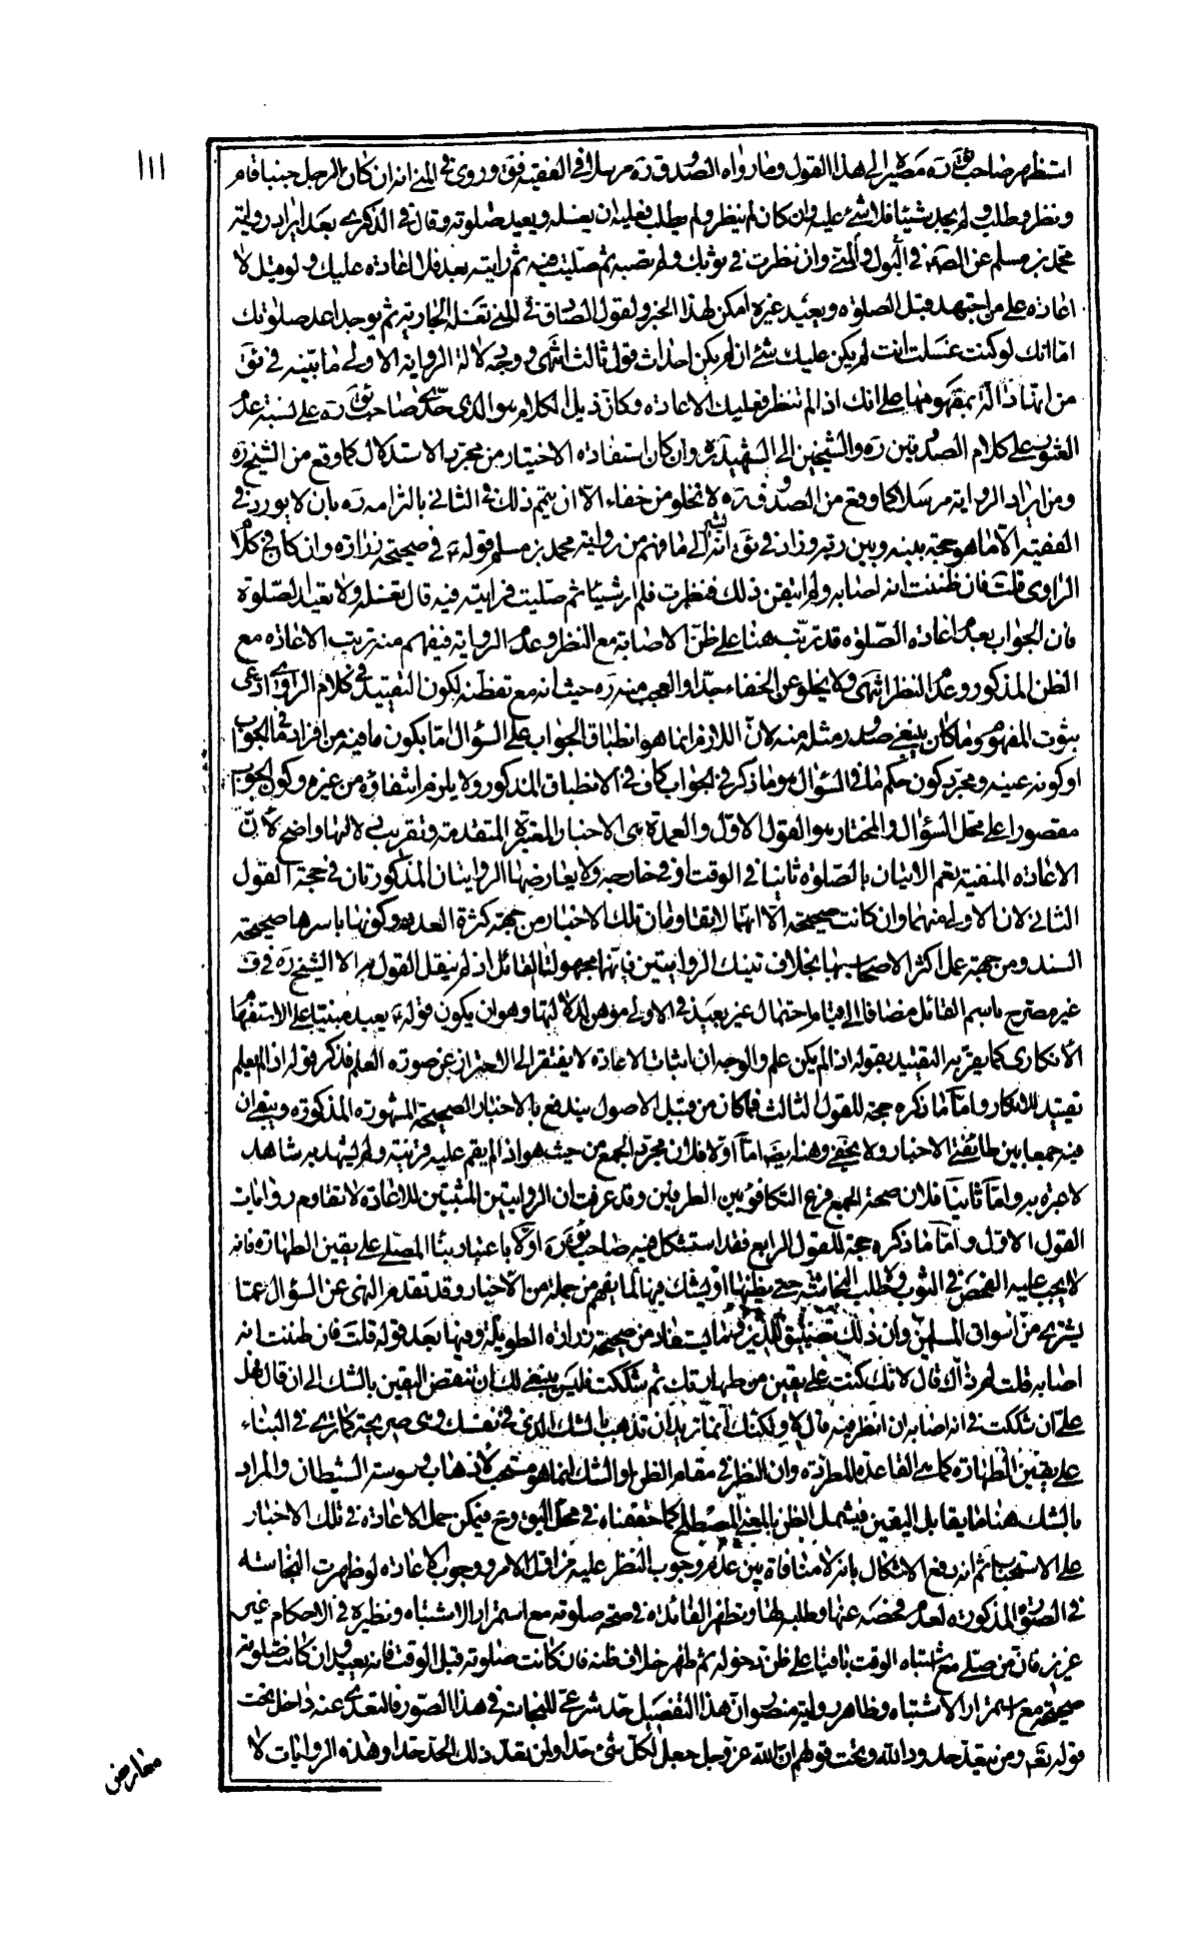 ١١١
استظهر صاحب ئق ره مصيرا الى هذا القول وما رواه الصدوق ره مرسلا في الفقيه فق وروى في المنى انه ان كان الرجل جنبا قام
ونظر وطلب ولم يجد شيئا فلا شئ عليه وان كان لم ينظر ولم يطلب فعليه ان يغسله ويعيد صلوته وقال في الذكرى بعد ايراد رواية
محمد بن مسلم عن الصم في البول والمنى وان نظرت في ثوبك ولم تصبه ثم صليت فيه ثم رايته بعد فلا اعادة عليك ولو قيل لا
اعادة على من اجتهد قبل الصلوة ويعيد غيره امكن لهذا الخبر ولقول الصادق في المنى تغسله الجارية ثم يوجد اعد صلوتك
اما انك لو كنت غسلت انت لم يكن عليك شئ ان لم يكن احداث قول ثالث انتهى ووجه دلالة الرواية الاولى ما بينه في ئق
من انها دالة بمفهومها على انك اذا لم تنظر فعليك الاعادة وكان ذيل الكلام هو الذي صاحب ئق ره على نسبة عدم
على كلام الصدوقين ره والشيخين الى الشهيد ره وان كان استفادة الاختيار من مجرد الاستدلال كما وقع من الشيخ ره
ومن ايراد الرواية مرسلا كما وقع من الصدوق ره لا تخلو من خفاء الا ان يتم ذلك في الثاني بالتزامه ره بان لا يورد في
الفقيه الا ما هو حجة بينه وبين ربه وزاد في ئق انه يشير الى ما فهم من رواية محمد بن مسلم قوله ع في صحيحة زرارة وان كان في كلام
الراوى قلت فان ظننت انه اصابه ولم اتيقن ذلك فنظرت فلم ار شيئا ثم صليت فرايته فيه قال تغسله ولا تعيد الصلوة
فان الجواب بعدم اعادة الصلوة قد ترتب هنا على ظن الاصابة مع النظر وعدم الرواية فيفهم منه ترتب الاعادة مع
الظن المذكور وعدم النظر انتهى ولا يخلو عن الخفاء جدا والعجب منه ره حيث انه مع تفطنه لكون التقييد في كلام الراوى ادعى
ثبوت المفهوم وما كان ينبغي صدور مثله منه لان اللازم انما هو انطباق الجواب على السؤال اما بكون ما فيه من افراد ما في الجواب
او كونه عينه ومجرد كون حكم ما في السؤال هو ما ذكر في الجواب كاف في الانطباق المذكور ولا يلزم انتفاؤه من غيره وكون الجواب
مقصورا على محل السؤال والمختار هو القول الاول والعمدة هي الاخبار المعتبرة المتقدمة وتقريب دلالتها واضح لان
الاعادة المنفية تعم الاتيان بالصلوة ثانيا في الوقت او في خارجه ولا يعارضها الروايتان المذكورتان في حجة القول
الثاني لان الاولى منهما وان كانت صحيحة الا انها لا تقاومان تلك الاخبار من جهة كثرة العدد وكونها باسرها صحيحة
السند ومن جهة عمل اكثر الاصحاب بها بخلاف تينك الروايتين فانهما مجهولتا القائل اذ لم ينقل القول به الا الشيخ ره في ف
غير مصرح باسم القائل مضافا الى قيام احتمال غير بعيد في الاولى موهن لدلالتها وهو ان يكون قوله ع يعيد مبنيا على الاستفهام
الانكارى كما يقربه التقييد بقوله اذا لم يكن علم والوجه ان اثبات الاعادة لا يفتقر الى الاحتراز عن صورة العلم فذكر قوله اذا لم يعلم
تقييد للانكار واما ما ذكره حجة للقول الثالث فما كان من قبيل الاصول يندفع بالاخبار الصحيحة المشهورة المذكورة ويبقى ان
فيه جمعا بين طائفتي الاخبار ولا يخفى وهنه ايضا اما اولا فلان مجرد الجمع من حيث هو اذا لم يقم عليه قرينة ولم يشهد به شاهد
لا عبرة به واما ثانيا فلان صحة الجمع فرع التكافؤ بين الطرفين وقد عرفت ان الروايتين المثبتين للاعادة لا تقاوم روايات
القول الاول واما ما ذكره حجة للقول الرابع فقد استشكل فيه صاحب ئق ره اولا باعتبار بناء المصلى على يقين الطهارة فانه
لا يجب عليه الفحص في الثوب ولا طلب النجاسة حتى يظنها او يشك فيها لما يفهم من جملة من الاخبار وقد تقدم النهى عن السؤال عما
يشترى من اسواق المسلمين وان ذلك تضييق للدين كما يستفاد من صحيحة زرارة الطويلة وفيها بعد قوله قلت فان ظننت انه
اصابه قلت لم ذاك قال لانك كنت على يقين من طهارتك ثم شككت فليس ينبغي لك ان تنقض اليقين بالشك الى ان قال هل
على ان شككت في انه اصابه ان انظر فيه قال لا ولكنك انما تريد ان تذهب بالشك الذي في نفسك وهى صريحة كما ترى في البناء
على يقين الطهارة كما هي القاعدة المطردة وان النظر في مقام الظن او الشك انما هو مستحب لاذهاب وسوسة الشيطان والمراد
بالشك هنا ما يقابل اليقين فيشمل الظن بالمعنى المصطلح كما حققناه في محل اليق وح فيمكن حمل الاعادة في تلك الاخبار
على الاستحباب ثم انه دفع الاشكال بانه لا منافاة بين عدم وجوب النظر عليه من اول الامر ووجوب الاعادة لو ظهرت النجاسة
في الصورة المذكورة لعدم فحصه عنها وطلبه لها وتظهر الفائدة في صحة صلوته مع استمرار الاشتباه ونظيره في الاحكام غير
عزيز فان من صلى مع اشتباه الوقت بانيا على ظن دخوله ثم ظهر خلاف ظنه فان كانت صلوته قبل الوقت فانه يعيد وان كانت صلوته
صحيحة مع استمرار الاشتباه وظاهر رواية منصور ان هذا التفصيل حد شرعي للنجاسة في هذا الصور فالتعدى عنه داخل تحت
قوله تعم ومن يتعد حدود الله وتحت قولهم ان الله عز وجل جعل لكل شئ حدا ولمن تعدى ذلك الحد حدا وهذه الروايات لا
معارض